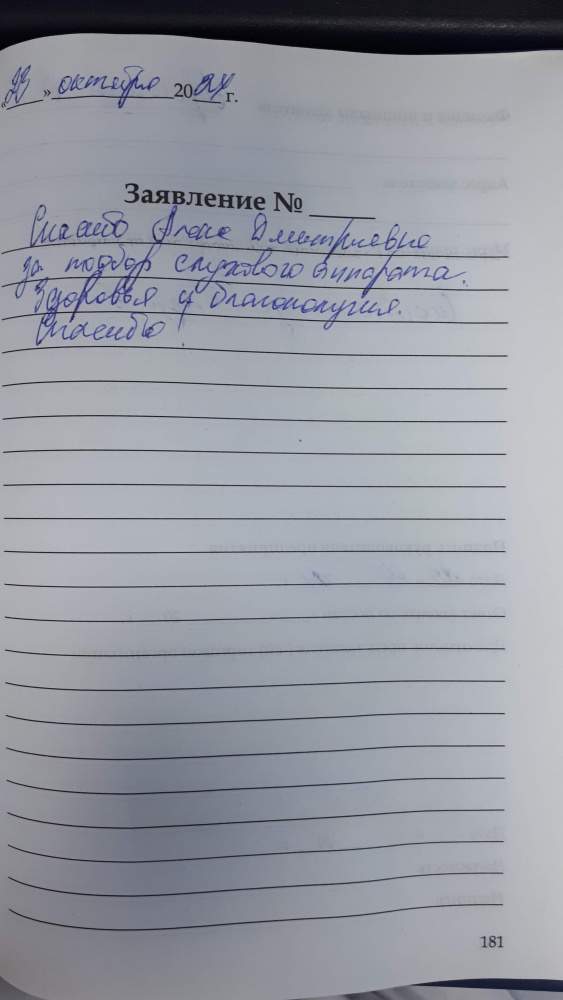 «23» октября 2024 г.
Заявление № ____
Спасибо Алене Дмитриевне
за подбор слухового аппарата.
Здоровья и благополучия.
Спасибо!
181